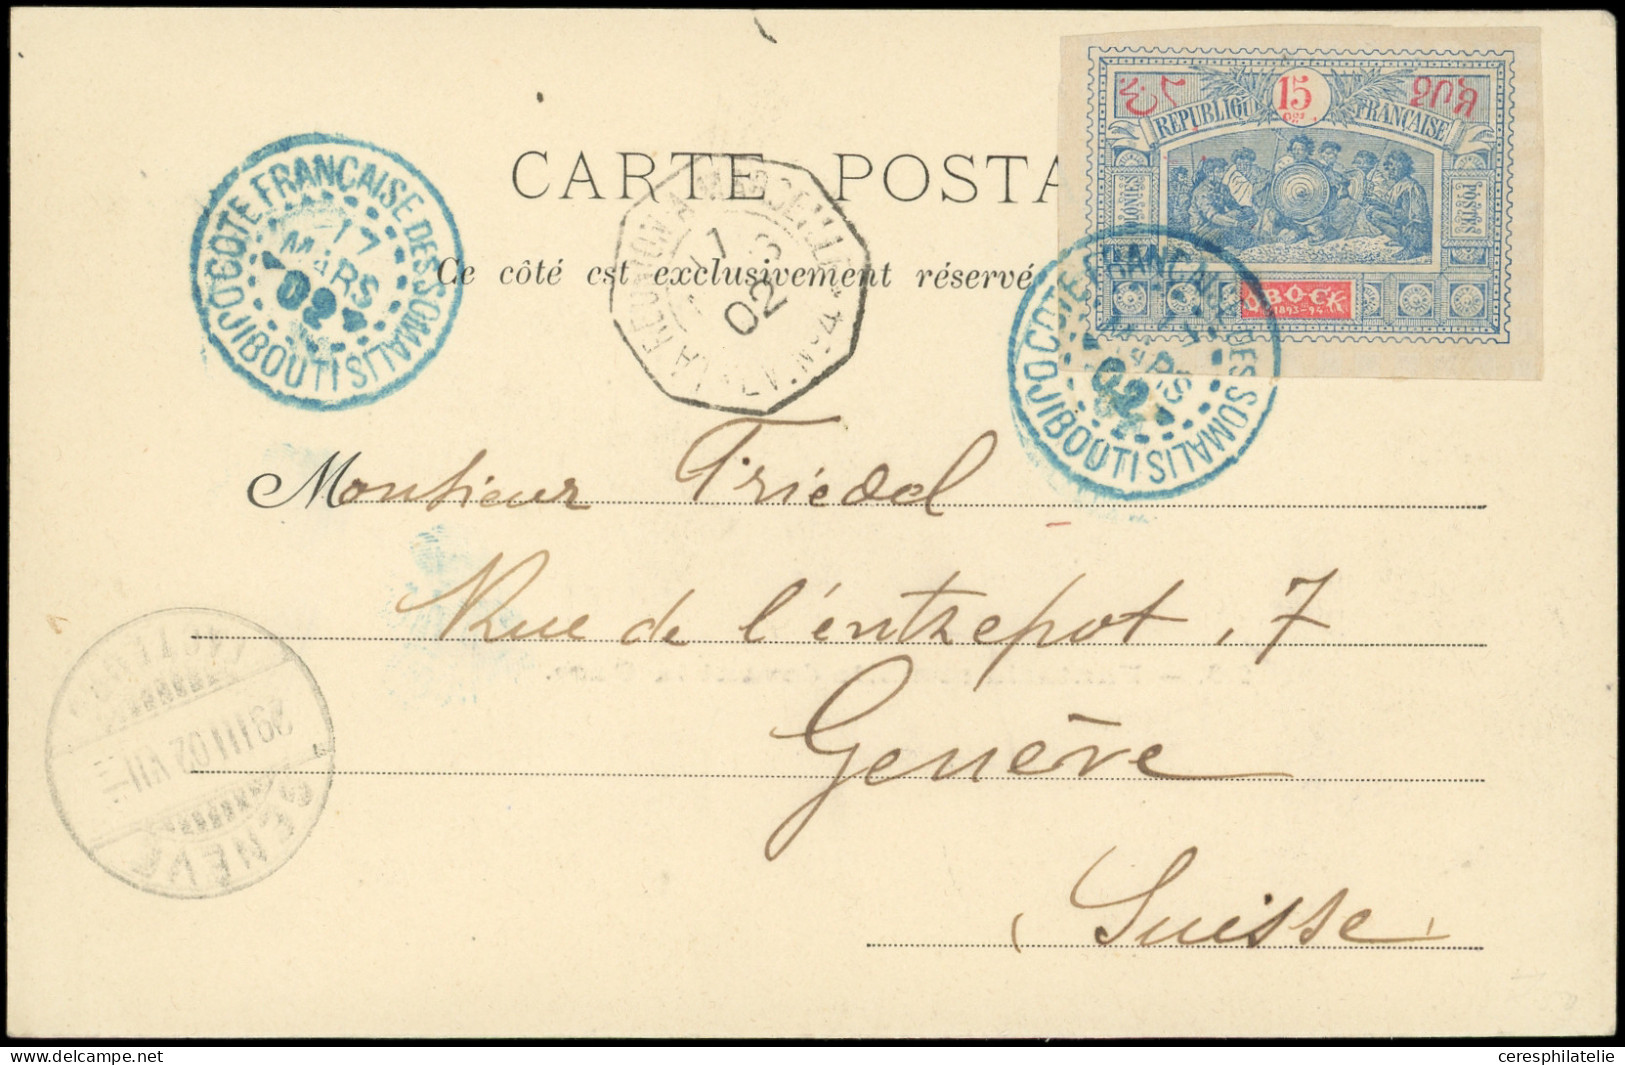 CARTE POSTA
Ce côté est exclusivement réservé
COTE FRANÇAISE DES SOMALIS
DJIBOUTI
17
MARS
02
LA REUNION A MARSEILLE
L.V. N° 4
02
15
RÉPUBLIQUE FRANÇAISE
COLONIES
POSTES
OBOCK
1893-94
COTE FRANÇAISE DES SOMALIS
DJIBOUTI
17
MARS
02
Monsieur Friedel
Rue de l'entrepot, 7
Genève
Suisse
29 III 02 VII
GENÈVE
ceresphilatelie